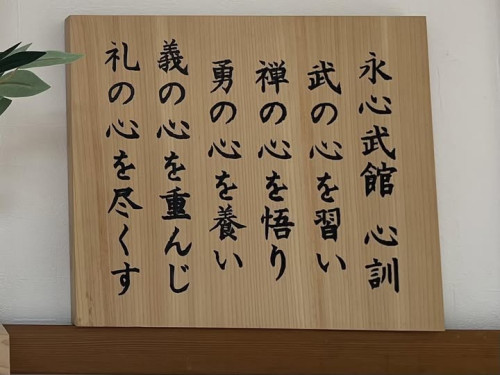 永心武館 心訓
武の心を習い
禅の心を悟り
勇の心を養い
義の心を重んじ
礼の心を尽くす